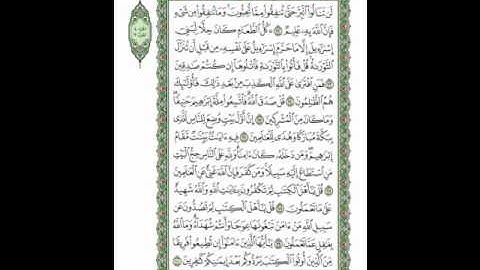 لَن تَنَالُوا۟ ٱلْبِرَّ حَتَّىٰ تُنفِقُوا۟ مِمَّا تُحِبُّونَ ۚ وَمَا تُنفِقُوا۟ مِن شَىْءٍ
فَإِنَّ ٱللَّهَ بِهِۦ عَلِيمٌ ۞ كُلُّ ٱلطَّعَامِ كَانَ حِلًّا لِّبَنِىٓ
إِسْرَٰٓءِيلَ إِلَّا مَا حَرَّمَ إِسْرَٰٓءِيلُ عَلَىٰ نَفْسِهِۦ مِن قَبْلِ أَن تُنَزَّلَ
ٱلتَّوْرَىٰةُ ۗ قُلْ فَأْتُوا۟ بِٱلتَّوْرَىٰةِ فَٱتْلُوهَآ إِن كُنتُمْ صَٰدِقِينَ
فَمَنِ ٱفْتَرَىٰ عَلَى ٱللَّهِ ٱلْكَذِبَ مِنۢ بَعْدِ ذَٰلِكَ فَأُو۟لَٰٓئِكَ
هُمُ ٱلظَّٰلِمُونَ قُلْ صَدَقَ ٱللَّهُ ۗ فَٱتَّبِعُوا۟ مِلَّةَ إِبْرَٰهِيمَ حَنِيفًا
وَمَا كَانَ مِنَ ٱلْمُشْرِكِينَ إِنَّ أَوَّلَ بَيْتٍ وُضِعَ لِلنَّاسِ لَلَّذِى
بِبَكَّةَ مُبَارَكًا وَهُدًى لِّلْعَٰلَمِينَ فِيهِ ءَايَٰتٌۢ بَيِّنَٰتٌ مَّقَامُ
إِبْرَٰهِيمَ ۖ وَمَن دَخَلَهُۥ كَانَ ءَامِنًا ۗ وَلِلَّهِ عَلَى ٱلنَّاسِ حِجُّ ٱلْبَيْتِ
مَنِ ٱسْتَطَاعَ إِلَيْهِ سَبِيلًا ۚ وَمَن كَفَرَ فَإِنَّ ٱللَّهَ غَنِىٌّ عَنِ ٱلْعَٰلَمِينَ
قُلْ يَٰٓأَهْلَ ٱلْكِتَٰبِ لِمَ تَكْفُرُونَ بِـَٔايَٰتِ ٱللَّهِ وَٱللَّهُ شَهِيدٌ
عَلَىٰ مَا تَعْمَلُونَ قُلْ يَٰٓأَهْلَ ٱلْكِتَٰبِ لِمَ تَصُدُّونَ عَن
سَبِيلِ ٱللَّهِ مَنْ ءَامَنَ تَبْغُونَهَا عِوَجًا وَأَنتُمْ شُهَدَآءُ ۗ وَمَا ٱللَّهُ
بِغَٰفِلٍ عَمَّا تَعْمَلُونَ يَٰٓأَيُّهَا ٱلَّذِينَ ءَامَنُوٓا۟ إِن تُطِيعُوا۟ فَرِيقًا
مِّنَ ٱلَّذِينَ أُوتُوا۟ ٱلْكِتَٰبَ يَرُدُّوكُم بَعْدَ إِيمَٰنِكُمْ كَٰفِرِينَ